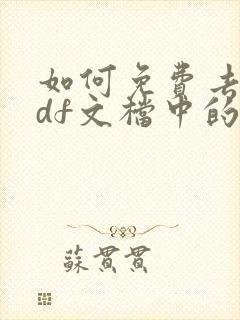 如何免费去
df文檔中的
蘇貫貫